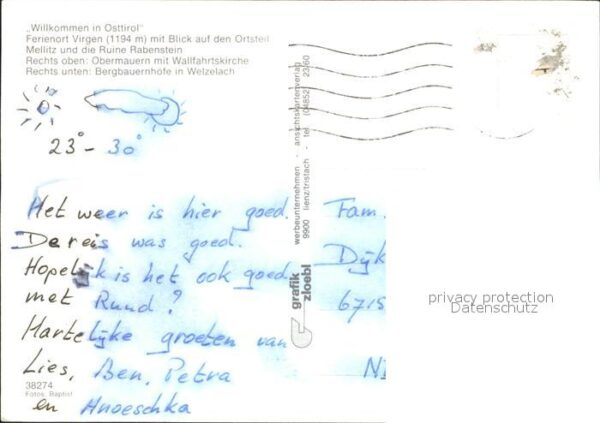 „Willkommen in Osttirol"
Ferienort Virgen (1194 m) mit Blick auf den Ortsteil
Mellitz und die Ruine Rabenstein
Rechts oben: Obermauern mit Wallfahrtskirche
Rechts unten: Bergbauernhöfe in Welzelach
23° - 30°
Het weer is hier goed.
De reis was goed.
Hopelijk is het ook goed
met Ruud?
Hartelijke groeten van
Lies, Ben, Petra
en Anoeschka
38274
Fotos: Baptist
werbeunternehmen - ansichtskartenverlag
9900 lienz/tristach - tel. (04852) 23 60
grafik
zloebl
Fam.
Dijk
6715
privacy protection
Datenschutz